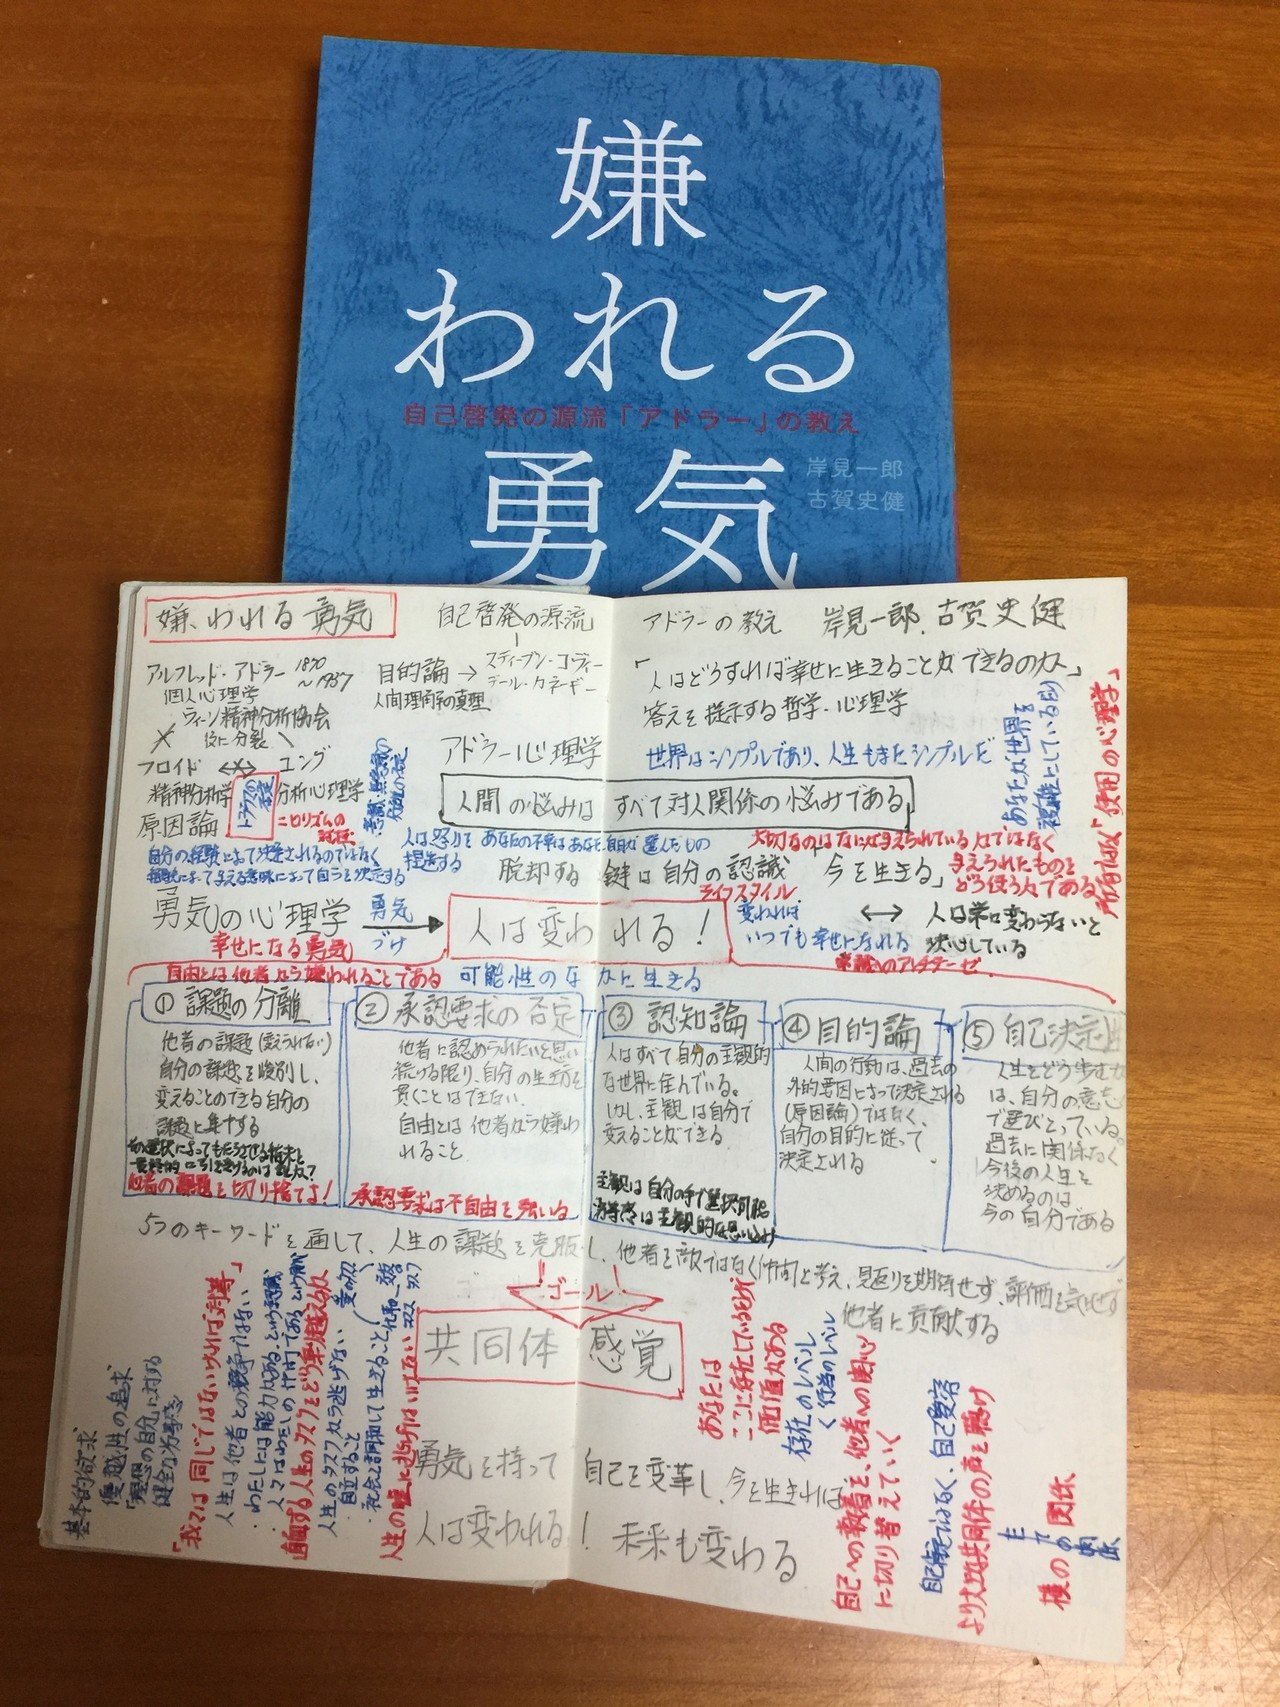 嫌
われる
自己啓発の源流「アドラー」の教え
勇気
岸見一郎
古賀史健
嫌われる勇気
自己啓発の源流
アドラーの教え
岸見一郎、古賀史健
アルフレッド・アドラー 1870〜1937
個人心理学
ウィーン精神分析協会
後に分裂
フロイド ⟷ ユング
精神分析学
分析心理学
原因論
トラウマの否定
目的論 → スティーブン・コヴィー
デール・カネギー
人間理解の真理
「人はどうすれば幸せに生きることができるのか」
答えを提示する哲学・心理学
アドラー心理学
世界はシンプルであり、人生もまたシンプルだ
人間の悩みはすべて対人関係の悩みである
自分の経験によって決定されるのではなく
経験に与える意味によって自らを決定する
人は怒りを捏造する
あなたの不幸はあなた自身が選んだもの
大切なのはなにが与えられているかではなく
与えられたものをどう使うかである
「使用の心理学」
脱却する鍵は自分の認識
ライフスタイル
今を生きる」
勇気の心理学
勇気づけ
人は変われる!
幸せになる勇気
変われば
いつでも幸せになれる
⟷
人は常に変わらないと
決心している
自由とは他者から嫌われることである
可能性のなかに生きる
①課題の分離
他者の課題(変えられない)
自分の課題を峻別し、
変えることのできる自分の
課題に集中する
他者の課題を切り捨てよ!
②承認要求の否定
他者に認められたいと思い
続ける限り、自分の生き方を
貫くことはできない.
自由とは他者から嫌わ
れること
承認要求は不自由を強いる
③認知論
人はすべて自分の主観的
な世界に住んでいる。
しかし、主観は自分で
変えることができる
主観は自分の手で選択可能
劣等感は主観的な思い込み
④目的論
人間の行動は、過去の
外的要因によって決定される
(原因論)ではなく、
自分の目的に従って
決定される
⑤自己決定性
人生をどう歩むか
は、自分の意志
で選びとっている。
過去に関係なく
今後の人生を
決めるのは
今の自分である
5つのキーワードを通して、人生の課題を克服し、他者を敵ではなく仲間と考え、見返りを期待せず、評価を気にせず
他者に貢献する
ゴール
共同体感覚
基本的欲求
優越性の追求
「理想の自分」に対する
健全な劣等感
「我々は同じではないけれど対等」
人生は他者との競争ではない
・わたしには能力がある、という認識
・人々はわたしの仲間であるという認識
直面する人生のタスクをどう乗り越えるか
人生のタスクから逃げない
・自立すること
・社会と調和して生きること
人生の嘘に逃げてはいけない
あなたは
ここに存在しているだけで
価値がある
存在のレベル
行為のレベル
勇気を持って自己を変革し、今を生きれば
人は変われる!未来も変わる
自己への執着を、他者への関心
に切り替えていく
自己肯定ではなく、自己受容
より大きな共同体の声を聴け
横の関係
タテの関係